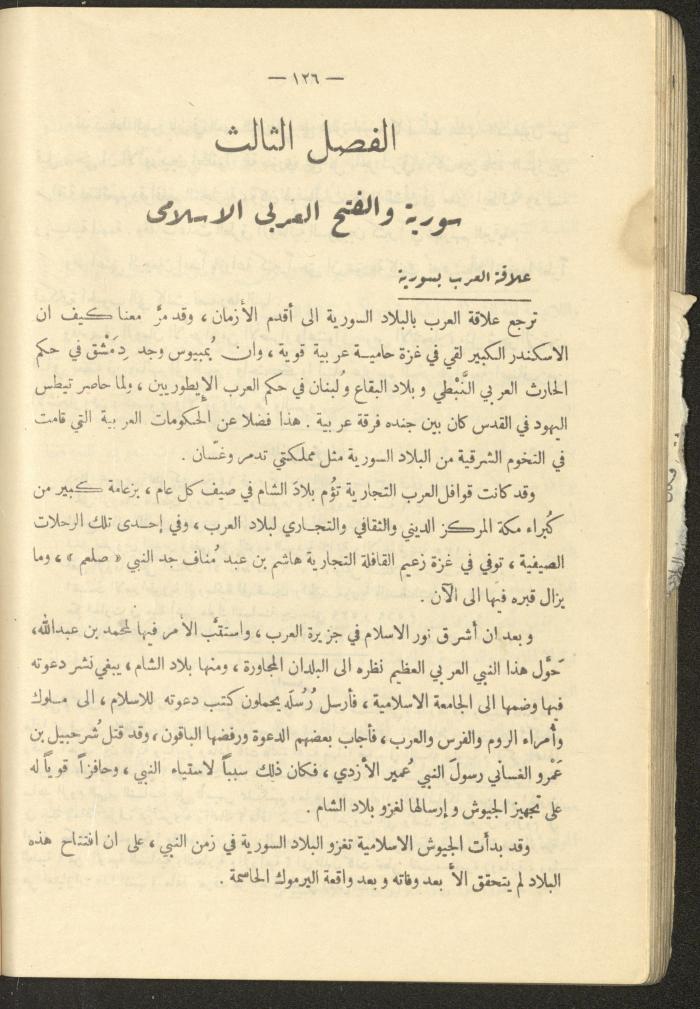 — ١٢٦ —
الفصل الثالث
سورية والفتح العربي الاسلامي
علاقة العرب بسورية
ترجع علاقة العرب بالبلاد السورية الى أقدم الأزمان ، وقد مرّ معنا كيف ان
الاسكندر الكبير لقي في غزة حامية عربية قوية ، وان يُمبيوس وجد دِمَشْق في حكم
الحارث العربي النَّبْطي وبلاد البقاع ولُبنان في حكم العرب الإِيطوريين ، ولما حاصر تيطس
اليهود في القدس كان بين جنده فرقة عربية . هذا فضلا عن الحكومات العربية التي قامت
في التخوم الشرقية من البلاد السورية مثل مملكتي تدمر وغسّان .
وقد كانت قوافل العرب التجارية تؤُم بلادَ الشام في صيف كل عام ، بزعامة كبير من
كُبراء مكة المركز الديني والثقافي والتجاري لبلاد العرب ، وفي إحدى تلك الرحلات
الصيفية ، توفي في غزة زعيم القافلة التجارية هاشم بن عبد مُناف جد النبي « صلعم » ، وما
يزال قبره فيها الى الآن .
وبعد ان أشرق نور الاسلام في جزيرة العرب ، واستقبَّ الأمر فيها لمحمد بن عبدالله،
حَوَّل هذا النبي العربي العظيم نظره الى البلدان المجاورة ، ومنها بلاد الشام ، يبغي نشر دعوته
فيها وضمها الى الجامعة الاسلامية ، فأرسل رُسُلَه يحملون كتب دعوته للاسلام ، الى ملوك
وأُمراء الروم والفرس والعرب ، فأجاب بعضهم الدعوة ورفضها الباقون ، وقد قتل شُرحبيل بن
عَمْرو الغساني رسولَ النبي عُمير الأزدي ، فكان ذلِك سبباً لاستياء النبي ، وحافزاً قوياً له
على تجهيز الجيوش وإرسالها لغزو بلاد الشام .
وقد بدأت الجيوش الاسلامية تغزو البلاد السورية في زمن النبي ، على ان افتتاح هذه
البلاد لم يتحقق الأ بعد وفاته وبعد واقعة اليرموك الحاسمة .